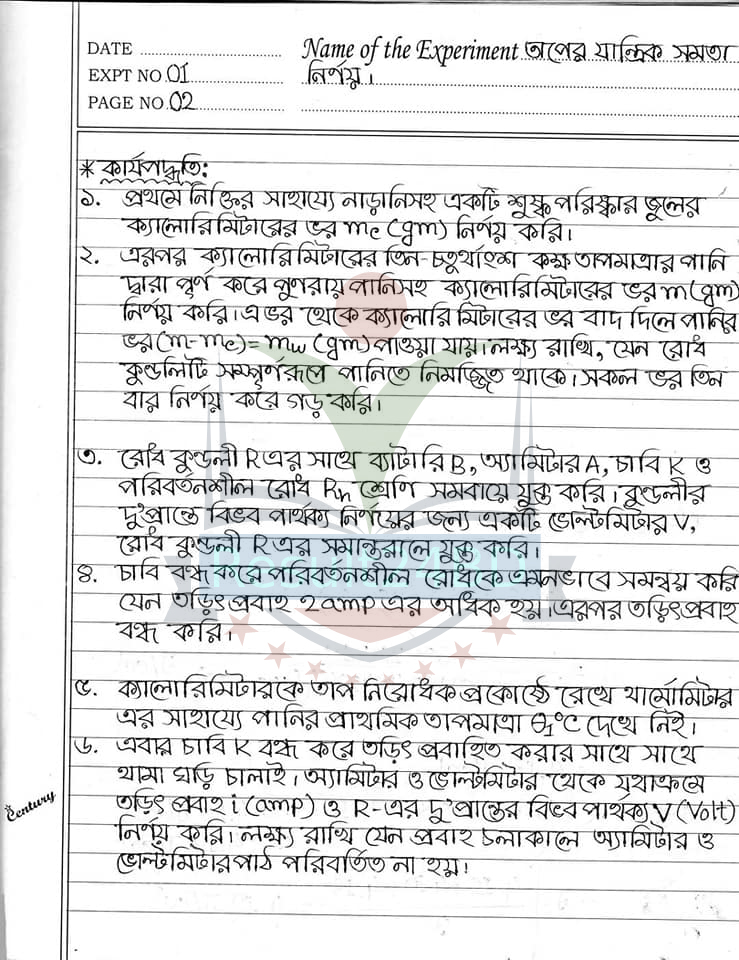 DATE
Name of the Experiment তাপের যান্ত্রিক সমতা
EXPT NO. 01
নির্ণয়।
PAGE NO. 02
* কার্যপদ্ধতি:
১. প্রথমে নিক্তির সাহায্যে নাড়ানিসহ একটি শুষ্ক পরিষ্কার জুলের
ক্যালোরিমিটারের ভর mc (gm) নির্ণয় করি।
২. এরপর ক্যালোরিমিটারের তিন-চতুর্থাংশ কক্ষ তাপমাত্রার পানি
দ্বারা পূর্ণ করে পুণরায় পানিসহ ক্যালোরিমিটারের ভর m (gm)
নির্ণয় করি। এ ভর থেকে ক্যালোরিমিটারের ভর বাদ দিলে পানির
ভর (m-mc) = mw (gm) পাওয়া যায়। লক্ষ্য রাখি, যেন রোধ
কুন্ডলিটি সম্পূর্ণরূপে পানিতে নিমজ্জিত থাকে। সকল ভর তিন
বার নির্ণয় করে গড় করি।
৩. রোধ কুন্ডলী R এর সাথে ব্যাটারি B, অ্যামিটার A, চাবি K ও
পরিবর্তনশীল রোধ Rh শ্রেণি সমবায়ে যুক্ত করি। কুন্ডলীর
দু'প্রান্তে বিভব পার্থক্য নির্ণয়ের জন্য একটি ভোল্টমিটার V,
রোধ কুন্ডলী R এর সমান্তরালে যুক্ত করি।
Result
৪. চাবি বন্ধ করে পরিবর্তনশীল রোধকে এমনভাবে সমন্বয় করি
যেন তড়িৎ প্রবাহ 2 amp এর অধিক হয়। এরপর তড়িৎ প্রবাহ
বন্ধ করি।
৫. ক্যালোরিমিটারকে তাপ নিরোধক প্রকোষ্ঠে রেখে থার্মোমিটার
এর সাহায্যে পানির প্রাথমিক তাপমাত্রা θ₁°C দেখে নিই।
৬. এবার চাবি K বন্ধ করে তড়িৎ প্রবাহিত করার সাথে সাথে
থামা ঘড়ি চালাই। অ্যামিটার ও ভোল্টমিটার থেকে যথাক্রমে
তড়িৎ প্রবাহ i (amp) ও R-এর দু'প্রান্তের বিভব পার্থক্য V (Volt)
নির্ণয় করি। লক্ষ্য রাখি যেন প্রবাহ চলাকালে অ্যামিটার ও
ভোল্টমিটার পাঠ পরিবর্তিত না হয়।
Century